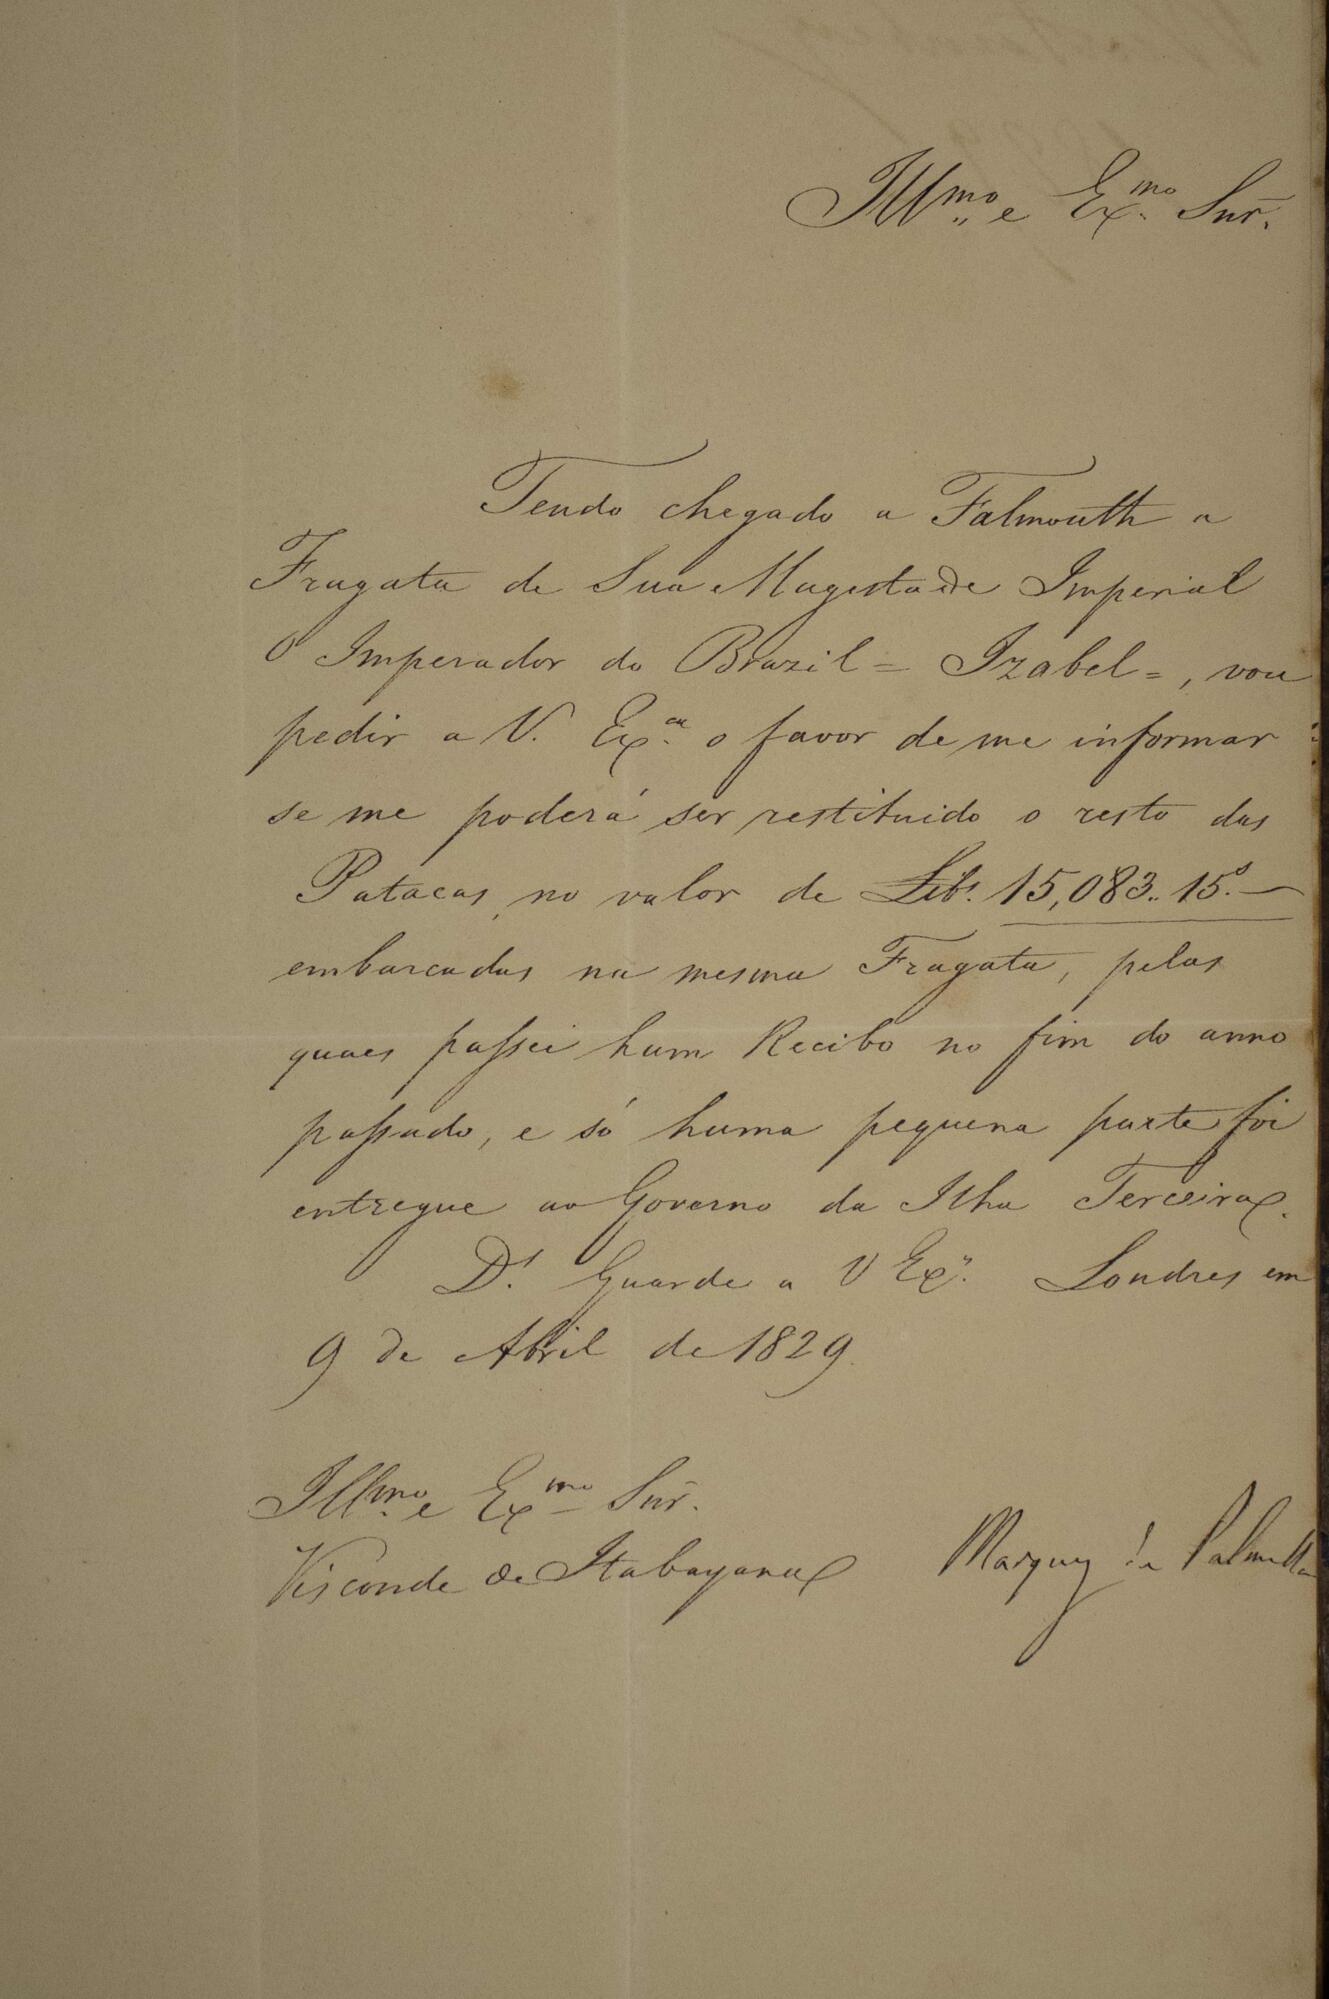 Illmo e Exmo Snr.
Tendo chegado a Falmouth a
Fragata de Sua Magestade Imperial
O Imperador do Brazil = Izabel =, vou
pedir a V. Exca. o favor de me informar
se me poderá ser restituido o resto das
Patacas, no valor de Libs. 15,083.. 15s. —
embarcadas na mesma Fragata, pelas
quaes passei hum Recibo no fim do anno
passado, e só huma pequena parte foi
entregue ao Governo da Ilha Terceira.
Ds. Guarde a V Exa. Londres em
9 de Abril de 1829.
Illmo. e Exmo Snr.
Visconde de Itabayana
Marquez de Palmella